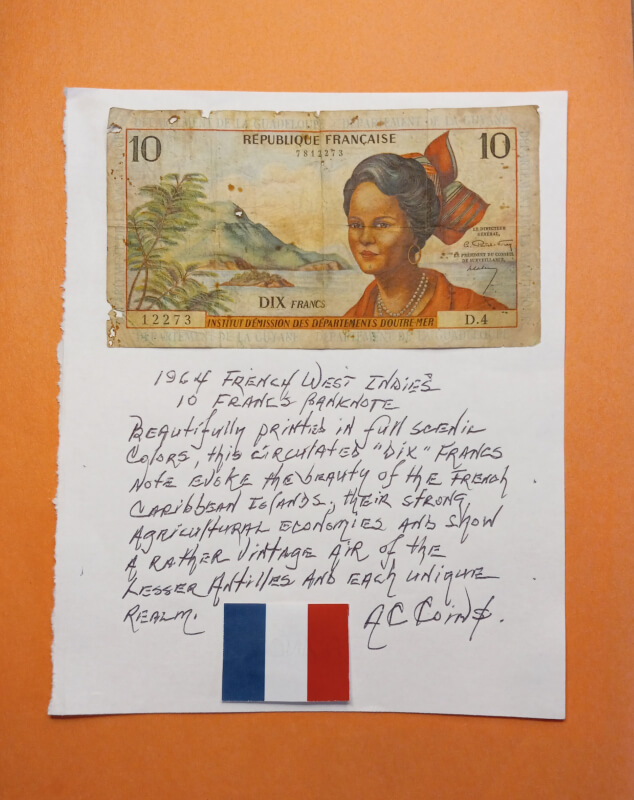 DÉPARTEMENT DE LA GUADELOUPE DÉPARTEMENT DE LA GUYANE
RÉPUBLIQUE FRANÇAISE
7812273
10
10
LE DIRECTEUR
GÉNÉRAL,
LE PRÉSIDENT DU COMITÉ
DE SURVEILLANCE,
DIX FRANCS
12273
INSTITUT D'ÉMISSION DES DÉPARTEMENTS D'OUTRE-MER
D.4
DÉPARTEMENT DE LA GUYANE
1964 FRENCH WEST INDIES
10 FRANCS BANKNOTE
BEAUTIFULLY PRINTED IN FULL SCENIC
COLORS, THIS CIRCULATED, "DIX" FRANCS
NOTE EVOKE THE BEAUTY OF THE FRENCH
CARIBBEAN ISLANDS, THEIR STRONG,
AGRICULTURAL ECONOMIES AND SHOW
A RATHER VINTAGE AIR OF THE
LESSER ANTILLES AND EACH UNIQUE
REALM.
AC COIN$.